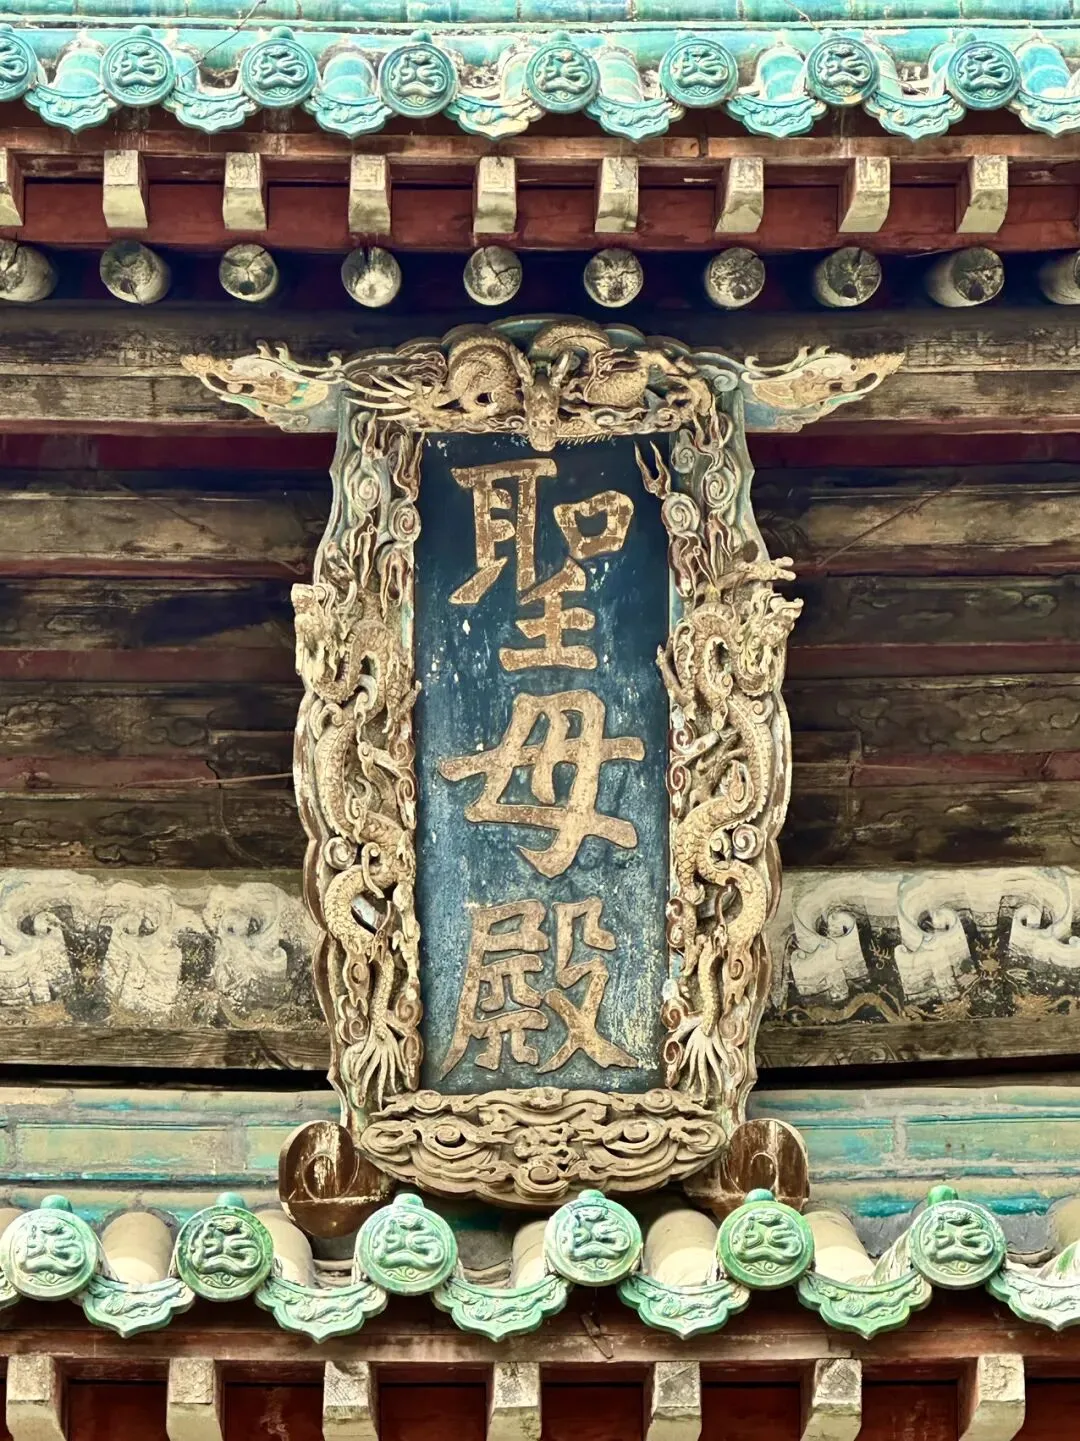 聖母殿